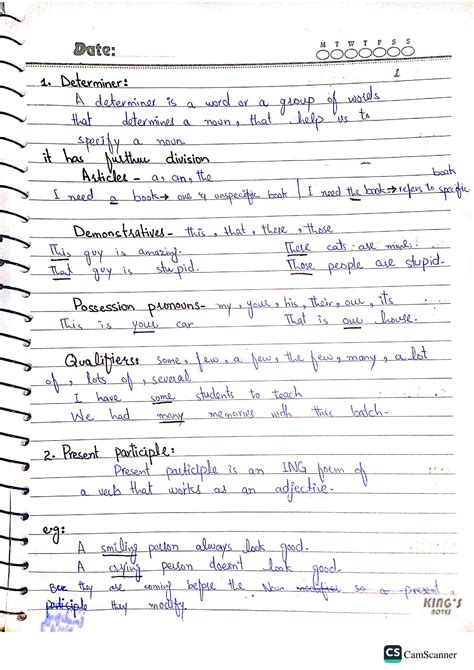 Date:
M T W T F S S
1
1. Determiner:
A determiner is a word or a group of words
that determines a noun, that help us to
specify a noun.
it has further division
Articles - a, an, the
I need a book → one & unspecific book | I need the book → refers to specific book
Demonstratives - this, that, there, those
This guy is amazing. There cats are mine.
That guy is stupid. Those people are stupid.
Possession pronouns - my, your, his, their, our, its
This is your car That is our house.
Qualifiers: some, few, a few, the few, many, a lot
of, lots of, several
I have some students to teach
We had many memories with this batch.
2. Present participle:
Present participle is an ING form of
a verb that works as an adjective.
eg:
A smiling person always look good.
A crying person doesn't look good.
they are coming before the Noun so present
participle they modify.
KING'S
NOTES
CS CamScanner